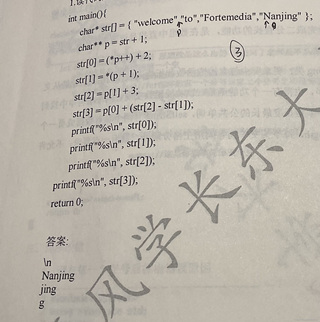 int main(){
char* str[] = { "welcome","to","Fortemedia","Nanjing" };
char** p = str + 1;
str[0] = (*p++) + 2;
str[1] = *(p + 1);
str[2] = p[1] + 3;
str[3] = p[0] + (str[2] - str[1]);
printf("%s\n", str[0]);
printf("%s\n", str[1]);
printf("%s\n", str[2]);
printf("%s\n", str[3]);
return 0;
答案:
\n
Nanjing
jing
g
③
P
P
风学长东大